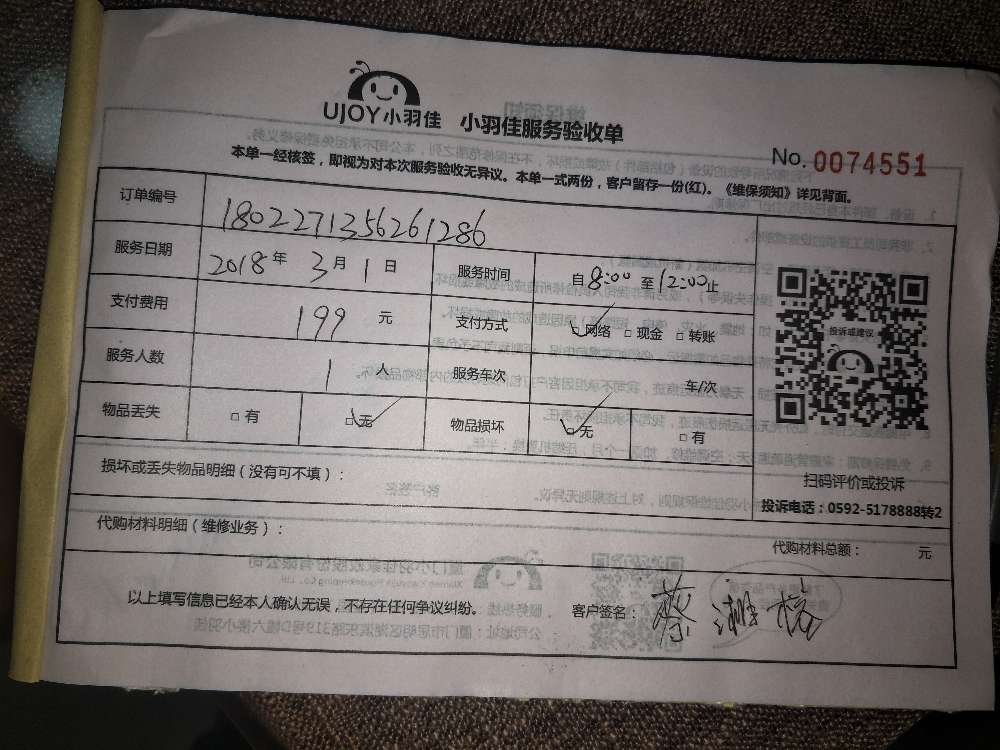 UJOY小羽佳 小羽佳服务验收单
No. 0074551
本单一经核签，即视为对本次服务验收无异议。本单一式两份，客户留存一份(红)。《维保须知》详见背面。
订单编号 1802271356261286
服务日期 2018年3月1日 服务时间 自8:00至12:00止
支付费用 199元 支付方式 网络 □现金 □转账
投诉或建议
服务人数 1人 服务车次 车/次
物品丢失 □有 □无 物品损坏 □无 □有
损坏或丢失物品明细（没有可不填）：
扫码评价或投诉
投诉电话：0592-5178888转2
代购材料明细（维修业务）：
代购材料总额： 元
以上填写信息已经本人确认无误，不存在任何争议纠纷。 客户签名：蔡